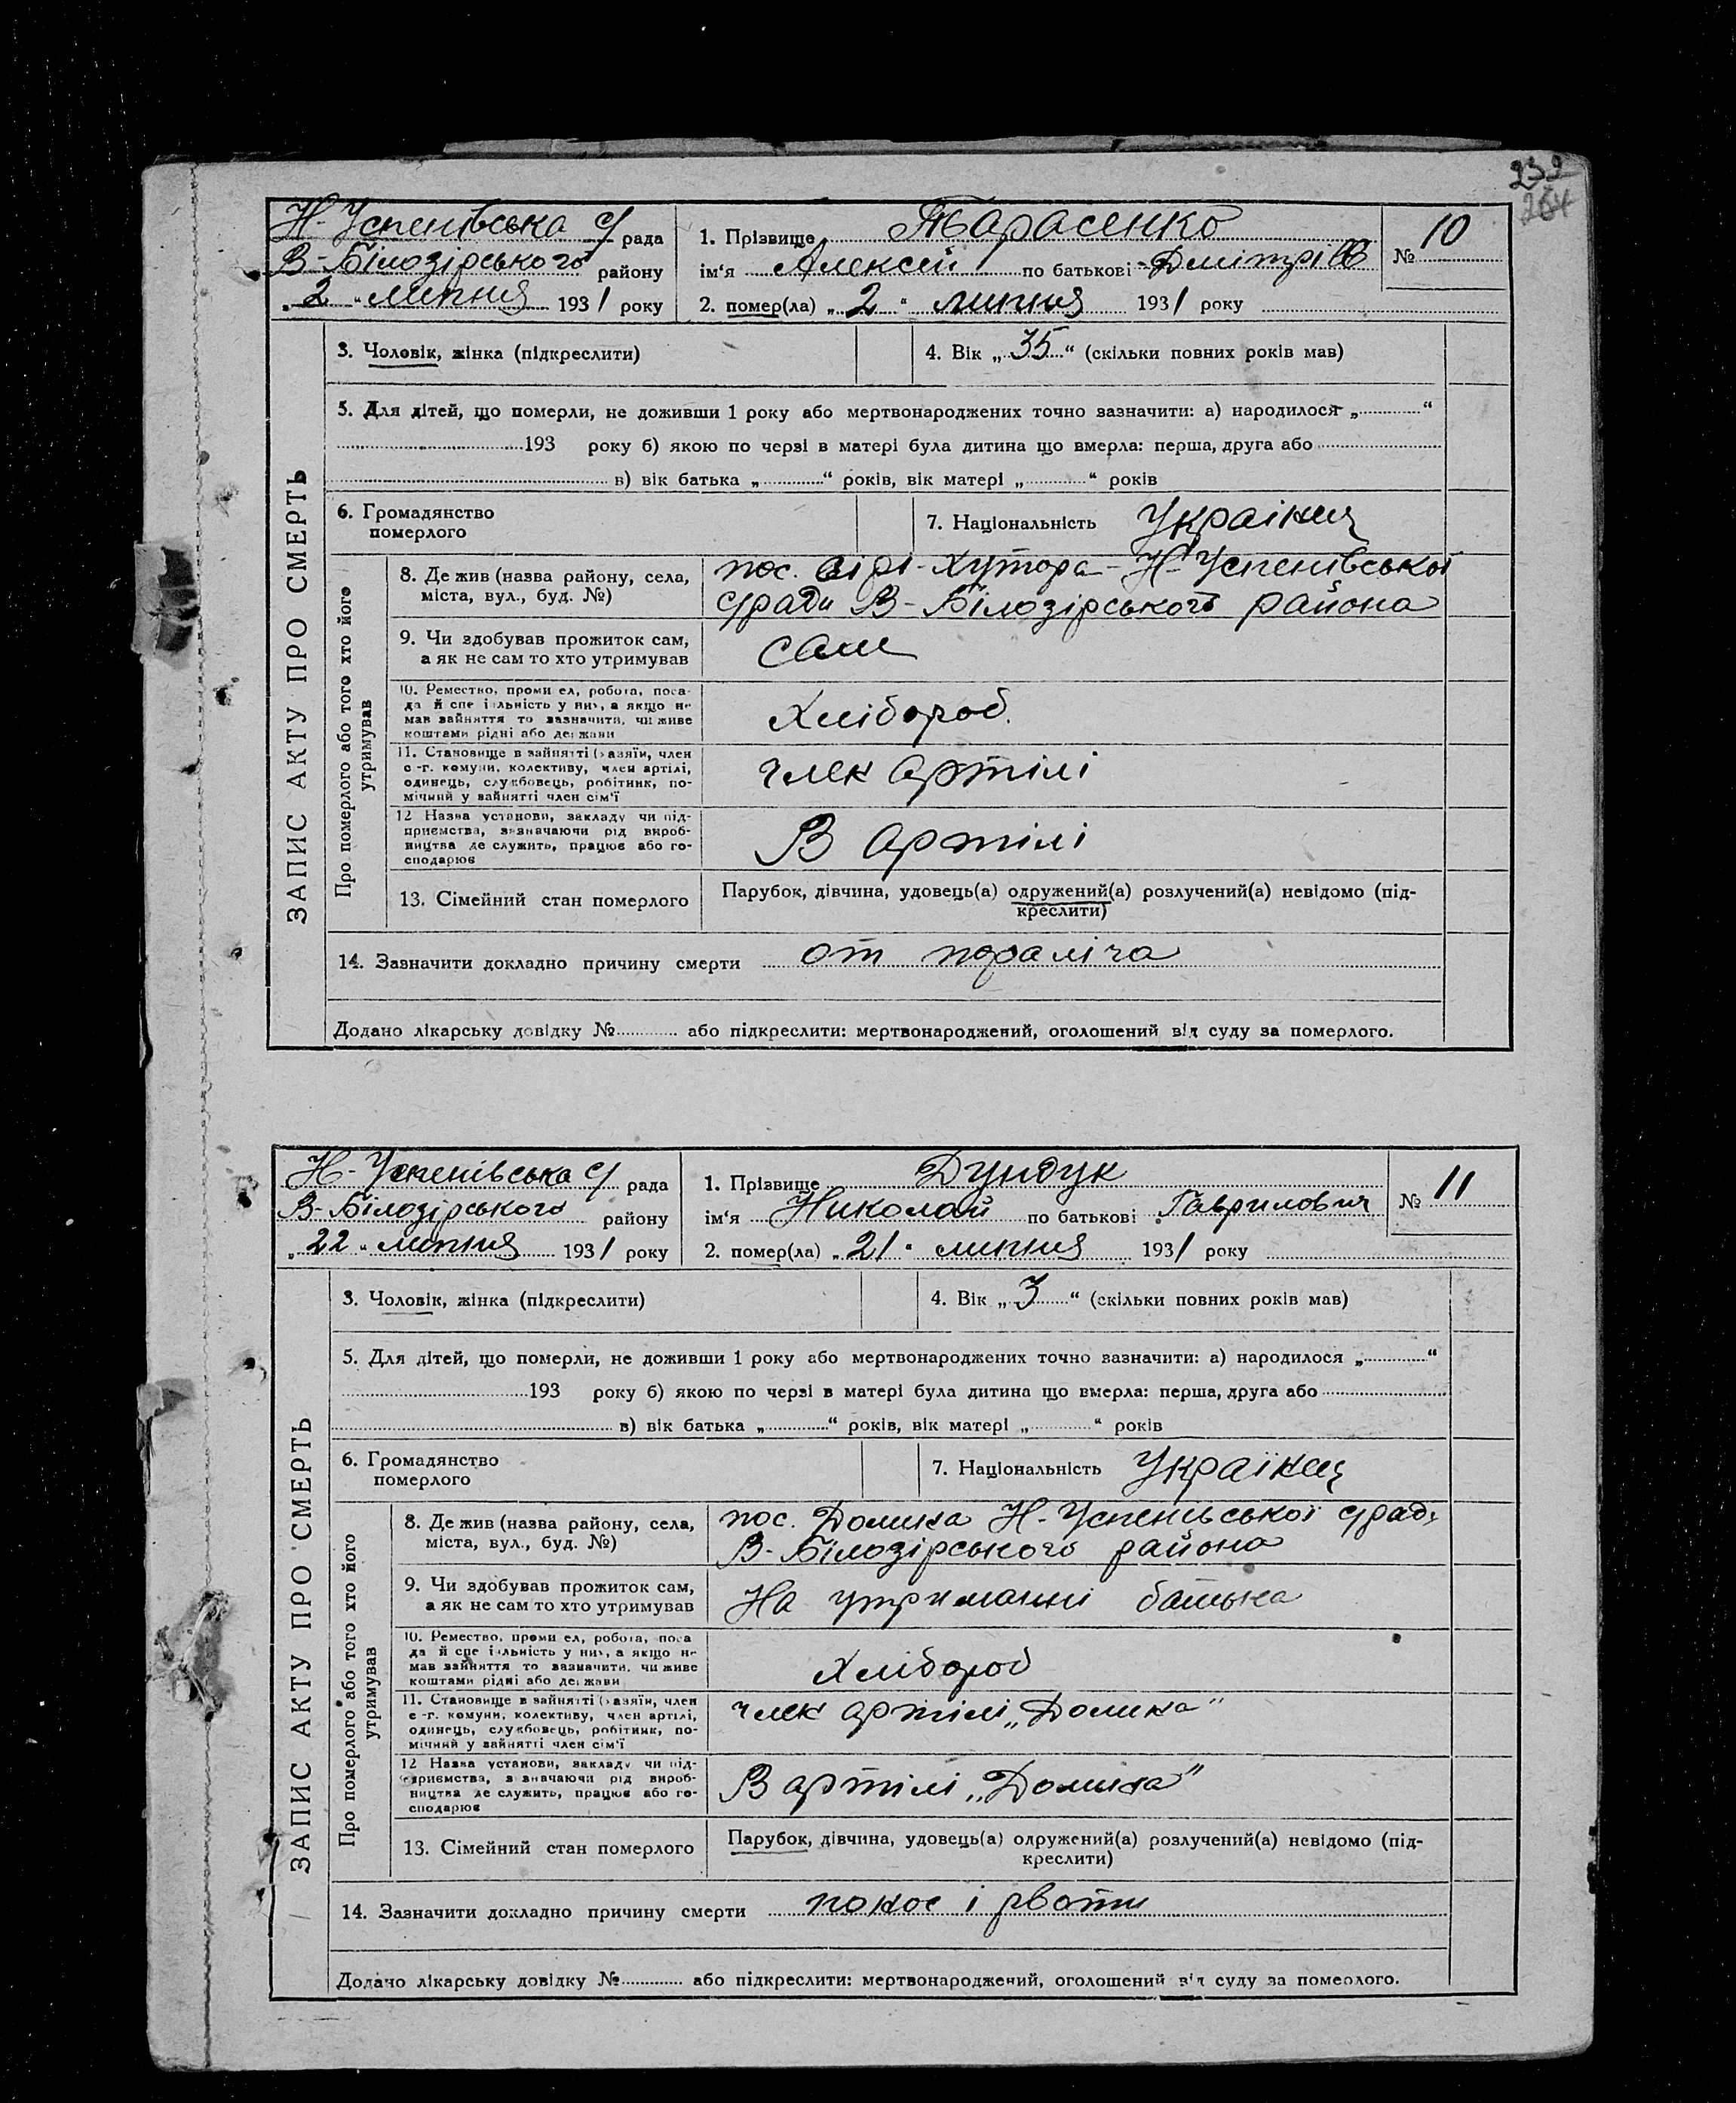 232
264
Н-Успенівська с/ рада
В-Білозірського району
„2“ липня 1931 року
1. Прізвище Тарасенко
ім‘я Алексей по батькові Дмітрі
№ 10
2. помер(ла) „2“ липня 1931 року
ЗАПИС АКТУ ПРО СМЕРТЬ
3. Чоловік, жінка (підкреслити)
4. Вік „35“ (скільки повних років мав)
5. Для дітей, що померли, не доживши 1 року або мертвонароджених точно зазначити: а) народилося „ “
193 року б) якою по черзі в матері була дитина що вмерла: перша, друга або
в) вік батька „ “ років, вік матері „ “ років
6. Громадянство
померлого
7. Національність Українец
Про померлого або того хто його
утримував
8. Де жив (назва району, села,
міста, вул., буд. №)
пос. Хутора Н-Успенівської
с/ради В-Білозірського района
9. Чи здобував прожиток сам,
а як не сам то хто утримував
сам
10. Ремество, проми ел, робота, поса-
да й спе іяльність у них, а якщо не
мав зайняття то зазначити, чи живе
коштами рідні або держави
Хлібороб
11. Становище в зайнятті (хазяїн, член
с-г. комуни, колективу, член артілі,
одинець, службовець, робітник, по-
мічний у зайнятті член сім'ї
член артілі
12 Назва установи, закладу чи під-
приємства, зазначаючи рід вироб-
ництва де служить, працює або го-
сподарює
В артілі
13. Сімейний стан померлого
Парубок, дівчина, удовець(а) одружений(а) розлучений(а) невідомо (під-
креслити)
14. Зазначити докладно причину смерти от параліча
Додано лікарську довідку № або підкреслити: мертвонароджений, оголошений від суду за померлого.
Н-Успенівська с/ рада
В-Білозірського району
„22“ липня 1931 року
1. Прізвище Дундук
ім‘я Николай по батькові Гаврилович
№ 11
2. помер(ла) „21“ липня 1931 року
ЗАПИС АКТУ ПРО СМЕРТЬ
3. Чоловік, жінка (підкреслити)
4. Вік „3“ (скільки повних років мав)
5. Для дітей, що померли, не доживши 1 року або мертвонароджених точно зазначити: а) народилося „ “
193 року б) якою по черзі в матері була дитина що вмерла: перша, друга або
в) вік батька „ “ років, вік матері „ “ років
6. Громадянство
померлого
7. Національність Українец
Про померлого або того хто його
утримував
8. Де жив (назва району, села,
міста, вул., буд. №)
пос. Долина Н-Успенівської с/рад.
В-Білозірського района
9. Чи здобував прожиток сам,
а як не сам то хто утримував
На утриманні батька
10. Ремество, проми ел, робота, поса
да й спе іяльність у них, а якщо не
мав зайняття то зазначити, чи живе
коштами рідні або держави
Хлібороб
11. Становище в зайнятті (хазяїн, член
с-г. комуни, колективу, член артілі,
одинець, службовець, робітник, по-
мічний у зайнятті член сім'ї
член артілі „Долина“
12 Назва установи, закладу чи під-
приємства, зазначаючи рід вироб-
ництва де служить, працює або го-
сподарює
В артілі „Долина“
13. Сімейний стан померлого
Парубок, дівчина, удовець(а) одружений(а) розлучений(а) невідомо (під-
креслити)
14. Зазначити докладно причину смерти понос і рвоти
Додано лікарську довідку № або підкреслити: мертвонароджений, оголошений від суду за померлого.